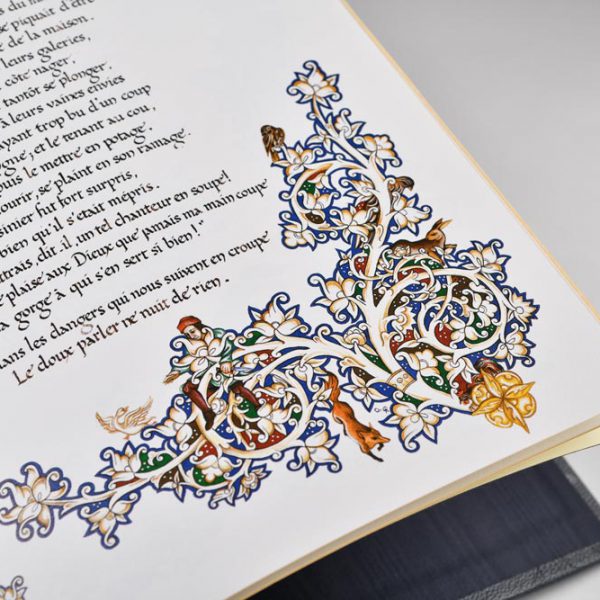 du
se piquait d'être
de la maison.
leurs galeries,
côte nager,
tantôt se plonger,
à leurs vaines envies
ayant trop bu d'un coup
ogne, et le tenant au cou,
puis le mettre en potage.
ourir, se plaint en son ramage.
sinier fut fort surpris,
bien qu'il s'était mépris.
trais, dit-il, un tel chanteur en soupe!
e plaise aux Dieux que jamais ma main coupe
a gorge à qui s'en sert si bien!"
ans les dangers qui nous suivent en croupe
Le doux parler ne nuit de rien.